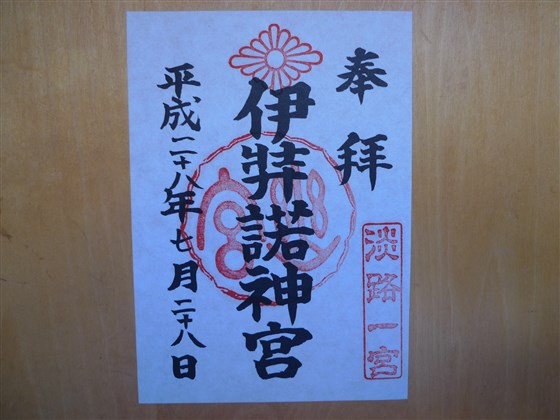 奉拝
淡路一宮
伊弉諾神宮
平成二十八年七月二十八日